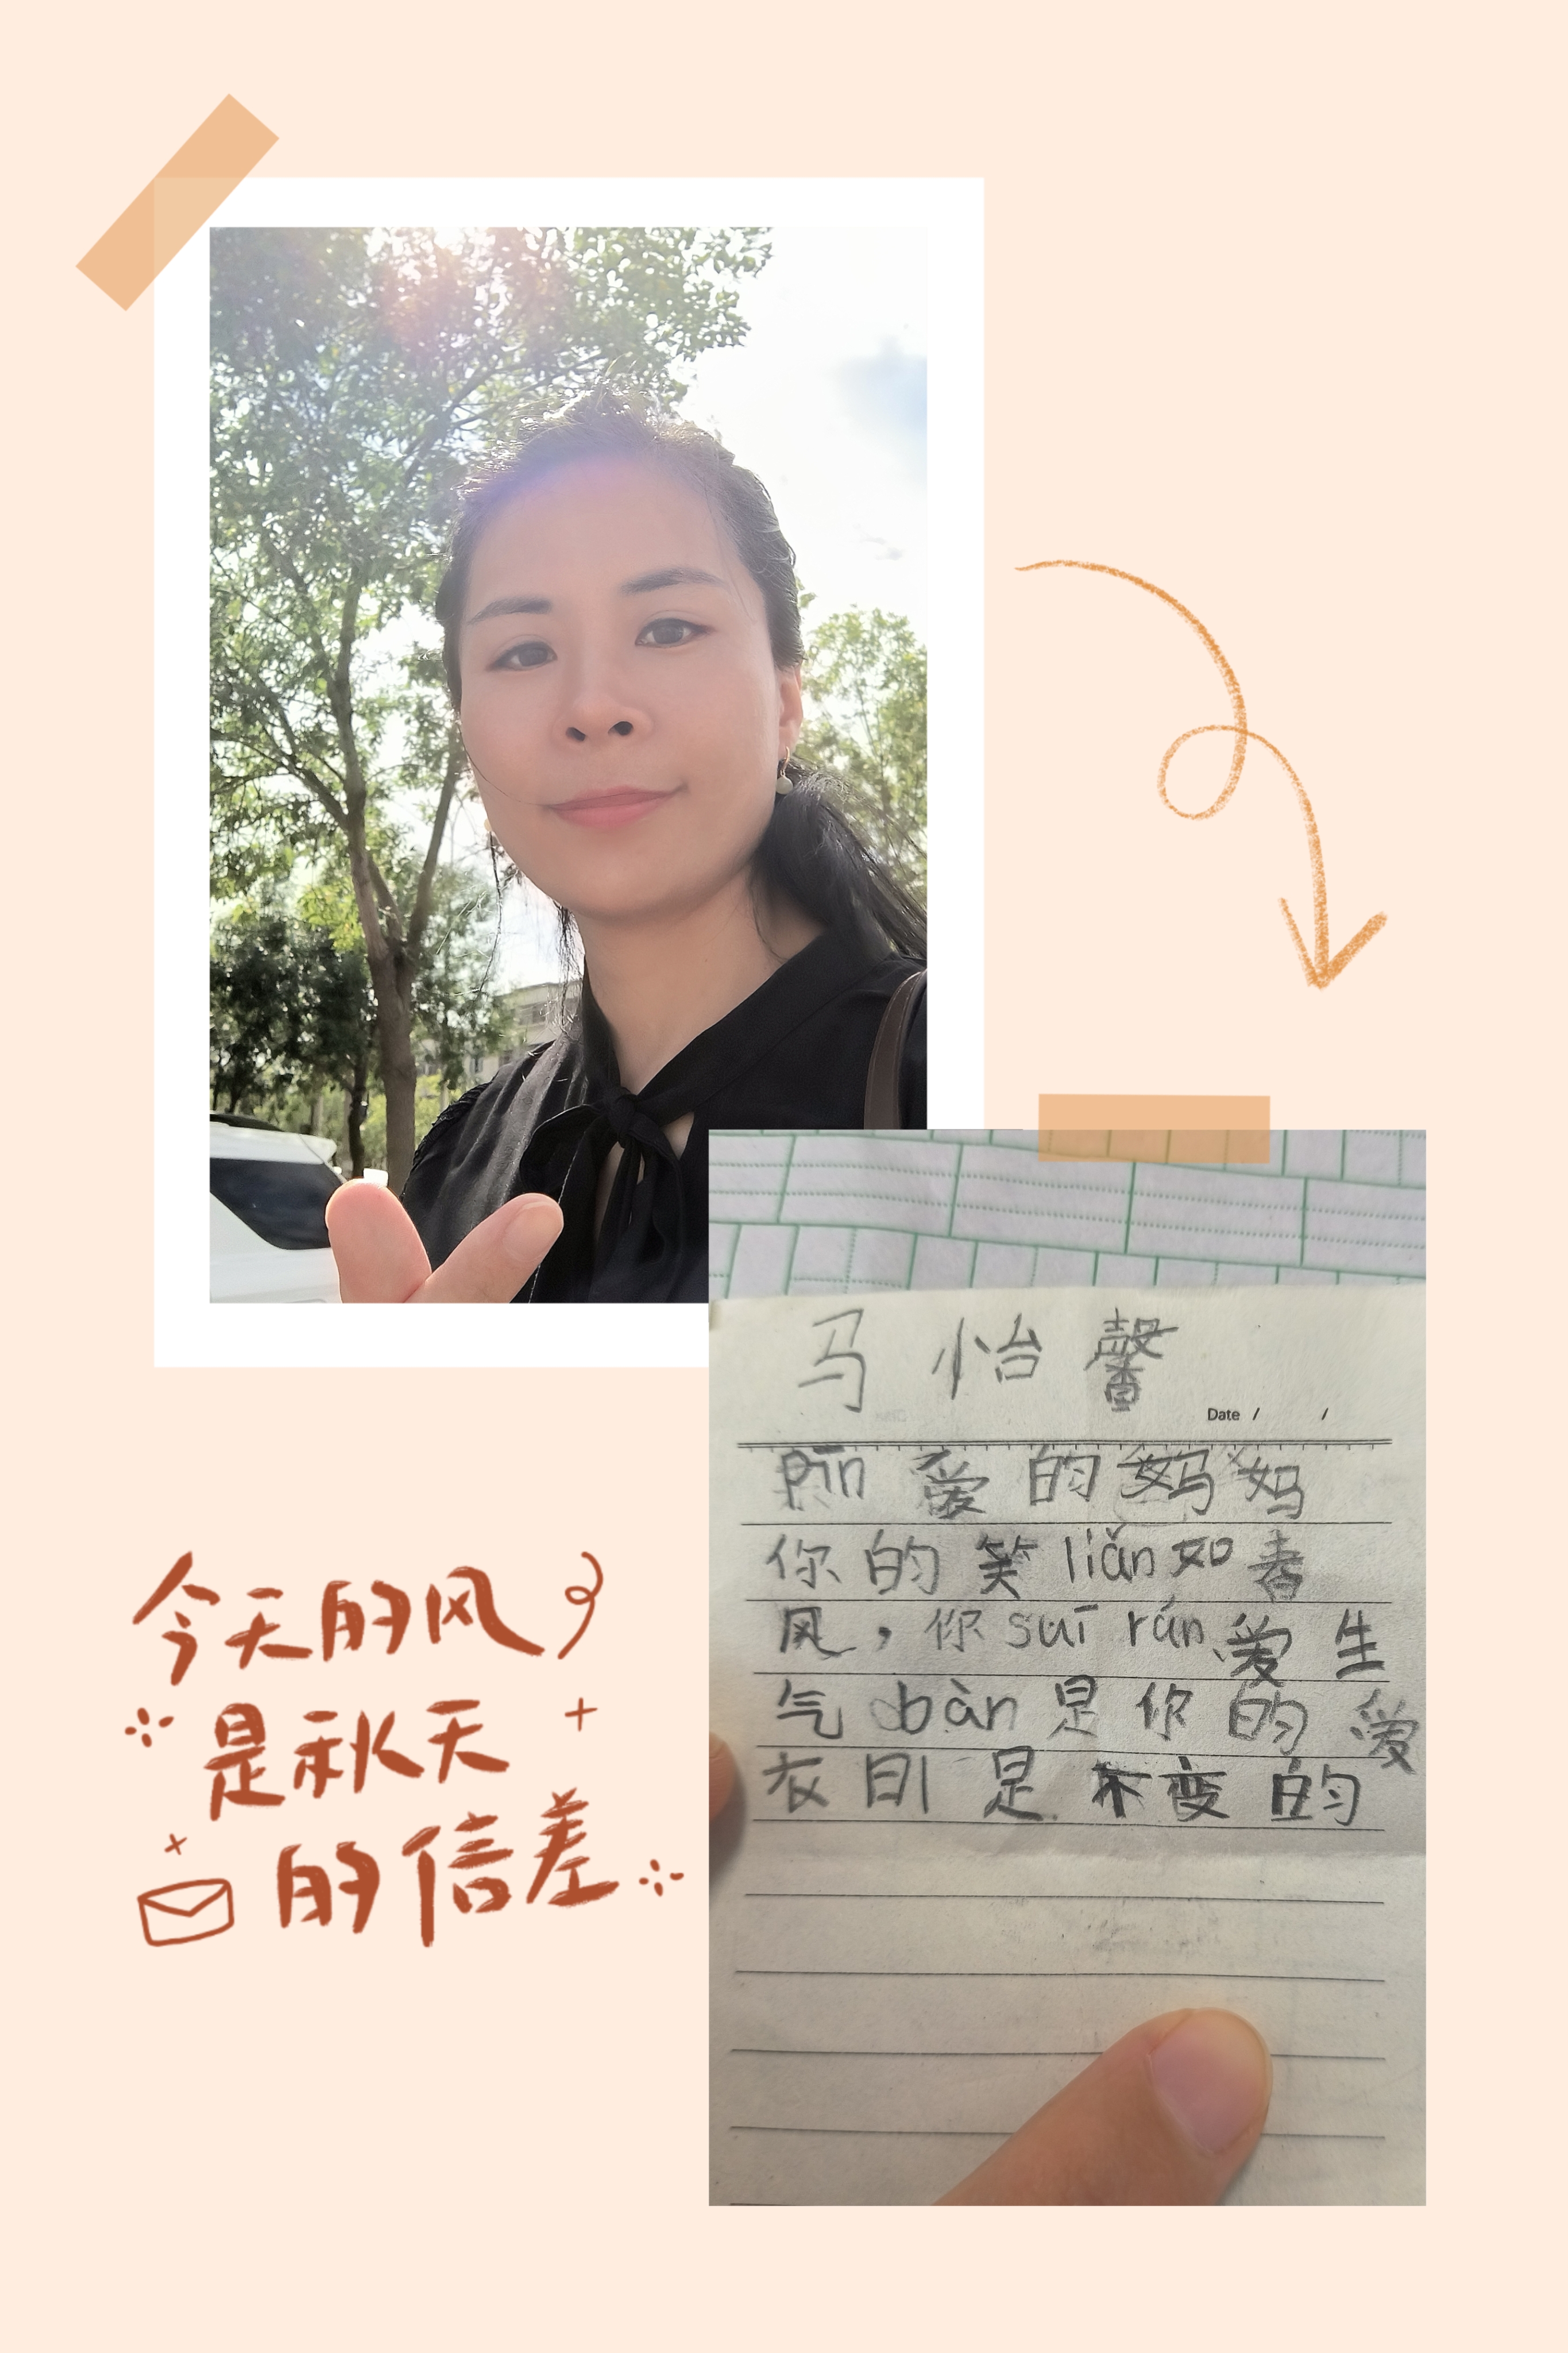 今天的风
是秋天
的信差
马怡馨
Date / /
pīn爱的妈妈
你的笑liǎn如春
风，你suī rán爱生
气bàn是你的爱
衣旧是不变的